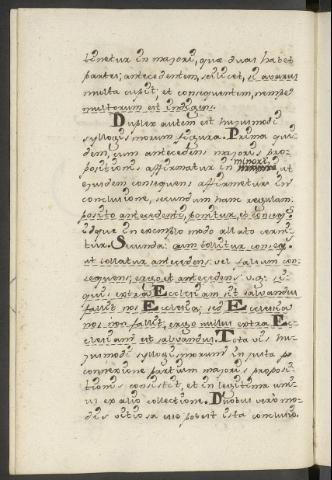 tinetur in majori, quæ duas habet
partes; antecedentem, scilicet, si avarus
multa cupit; et consequentem, nempe
multorum est indigus.
Duplex autem est hujusmodi
syllogismorum figura. Prima qui-
dem, cum antecedens majoris pro-
positionis affirmatur in minori ut
ejusdem consequens affirmetur in
conclusione, secundum hanc regulam:
posito antecedente, ponitur et conseq.s
idque in exemplo modo allato cerni-
tur. Secunda: cum tollitur conseq.s
ut tollatur antecedens vel falsum con-
sequens; ergo et antecedens v.g. si
quis extra Ecclesiam sit salvandus
fallit nos Ecclesia; sed Ecclesia
nos non fallit, ergo nullus extra Ec-
clesiam est salvandus. Tota vis hu-
jusmodi syllogismorum in justa
connexione partium majoris proposi-
tionis consistit, et in legitima uni-
us ex alio collectione. Duobus vero mo-
dis vitiosa esse potest ista conclusio,